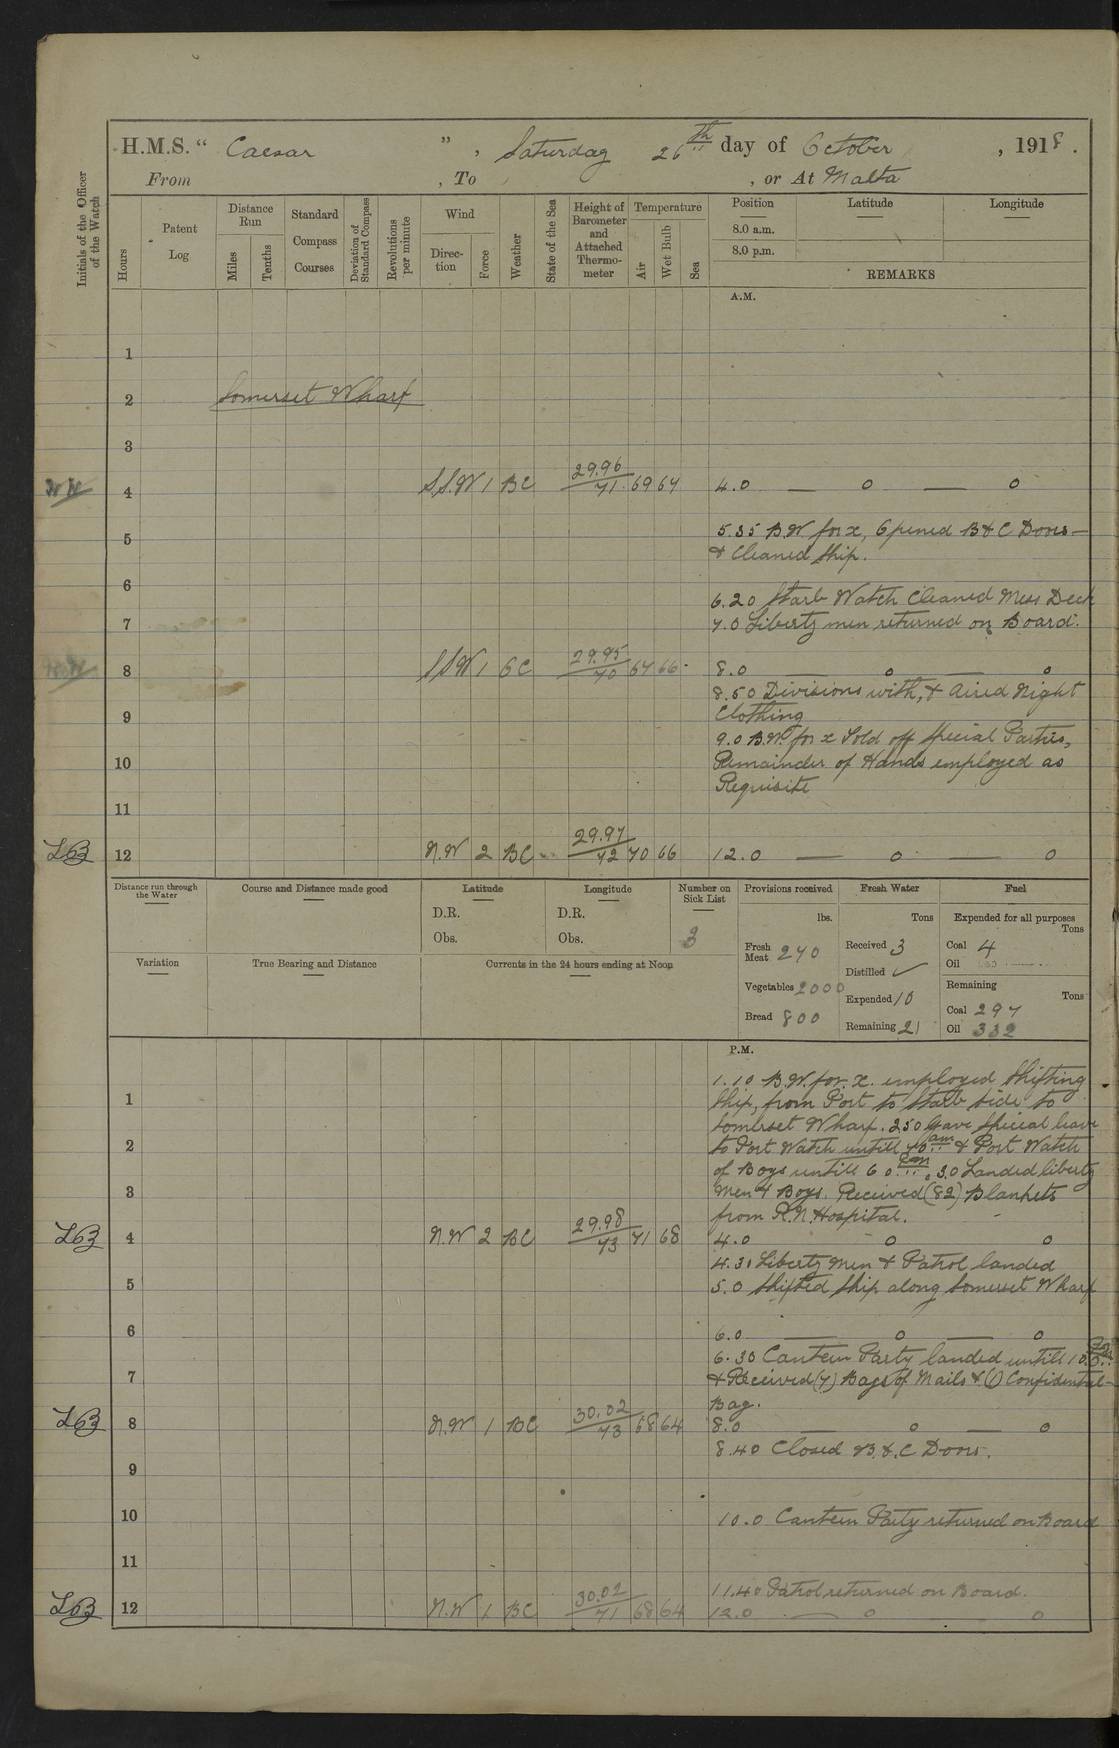 H.M.S. “ Caesar ” , Saturday 26th day of October , 1918 .
From , To , or At Malta
Initials of the Officer of the Watch
Hours
Patent Log
Distance Run
Miles
Tenths
Standard Compass Courses
Deviation of Standard Compass
Revolutions per minute
Wind
Direction
Force
Weather
State of the Sea
Height of Barometer and Attached Thermometer
Temperature
Air
Wet Bulb
Sea
Position Latitude Longitude
8.0 a.m.
8.0 p.m.
REMARKS
A.M.
1
2 Somerset Wharf
3
4 S.S.W 1 BC 29.96 71 69 64 4.0 — 0 — 0
5 5.35 B.W for x, Opened B & C Doors
& Cleaned Ship.
6 6.20 Starb Watch Cleaned Mess Deck
7 7.0 Liberty men returned on Board.
8 SSW 1 BC 29.95 70 67 66 8.0 — 0 — 0
8.50 Divisions with, & Aired Night
9 Clothing
9.0 B.W. for x Told off Special Parties,
10 Remainder of Hands employed as
Requisite
11
L63 12 N.W 2 BC 29.97 72 70 66 12.0 — 0 — 0
Distance run through the Water
Course and Distance made good
Latitude
D.R.
Obs.
Longitude
D.R.
Obs.
Number on Sick List
3
Provisions received
lbs.
Fresh Meat 240
Vegetables 2000
Bread 800
Fresh Water
Tons
Received 3
Distilled ✓
Expended 10
Remaining 21
Fuel
Expended for all purposes
Tons
Coal 4
Oil
Remaining
Tons
Coal 297
Oil 332
Variation
True Bearing and Distance
Currents in the 24 hours ending at Noon
P.M.
1.10 B.W. for x. employed Shifting
1 Ship, from Port to Starb side to
Somerset Wharf. 2.50 Gave Special leave
2 to Port Watch untill 7.0 am & Port Watch
of Boys untill 6.0 pm, 3.0 Landed liberty
3 Men & Boys. Received (82) Blankets
from R.N. Hospital.
L63 4 N.W 2 BC 29.98 73 71 68 4.0 0 0
4.30 Liberty Men & Patrol landed
5 5.0 Shifted Ship along Somerset Wharf
6 6.0 — 0 — 0
6.30 Canteen Party landed untill 10.0 pm
7 & Received (7) Bags of Mails & (1) Confidential
Bag.
L63 8 N.W 1 BC 30.02 73 68 64 8.0 — 0 — 0
8.40 Closed B. & C Doors.
9
10 10.0 Canteen Party returned on Board
11
11.40 Patrol returned on Board.
L63 12 N.W 1 BC 30.02 71 68 64 12.0 — 0 0